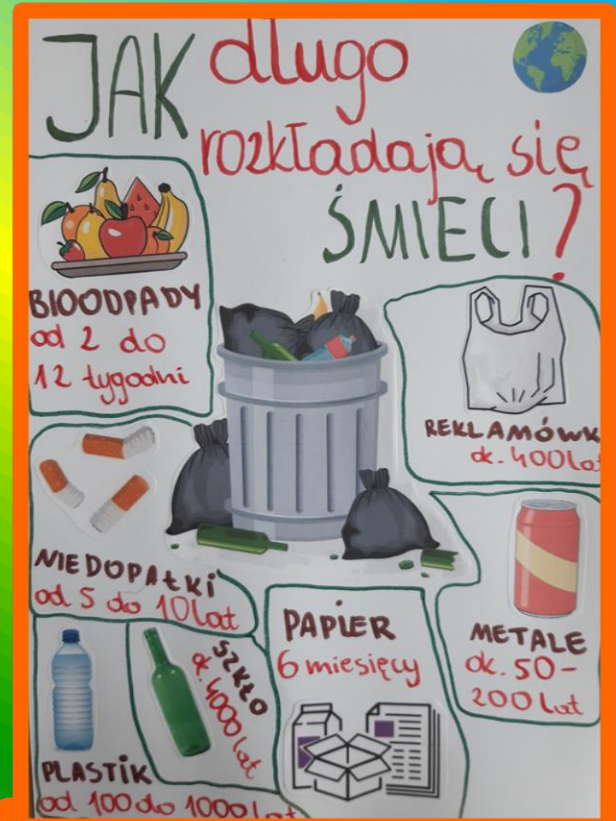 JAK długo
rozkładają się
ŚMIECI?
BIOODPADY
od 2 do
12 tygodni
REKLAMÓWK
ok. 400 lat
NIEDOPAŁKI
od 5 do 10 lat
PAPIER
6 miesięcy
METALE
ok. 50-
200 lat
SZKŁO
ok. 4000 lat
PLASTIK
od 100 do 1000 lat